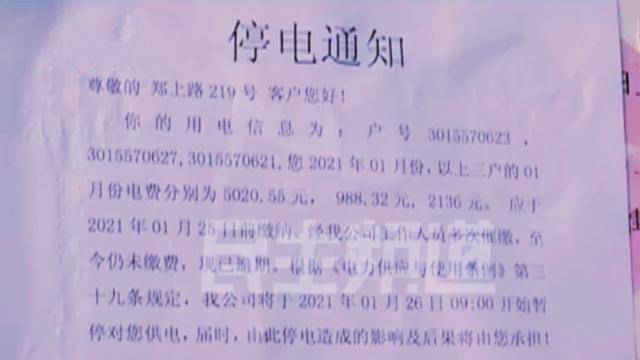 停电通知
尊敬的 郑上路 219 号 客户您好！
你的用电信息为：户号 3015570623，
3015570627,3015570621,您 2021 年 01 月份，以上三户的 01
月份电费分别为 5020.55 元， 988.32 元，2136 元。 应于
2021 年 01 月 25 日前缴纳、经我公司工作人员多次催缴，至
今仍未缴费，现已逾期。根据《电力供应与使用条例》第三
十九条规定，我公司将于 2021 年 01 月 26 日 09:00 开始暂
停对您供电，届时，由此停电造成的影响及后果将由您承担！
民生频道